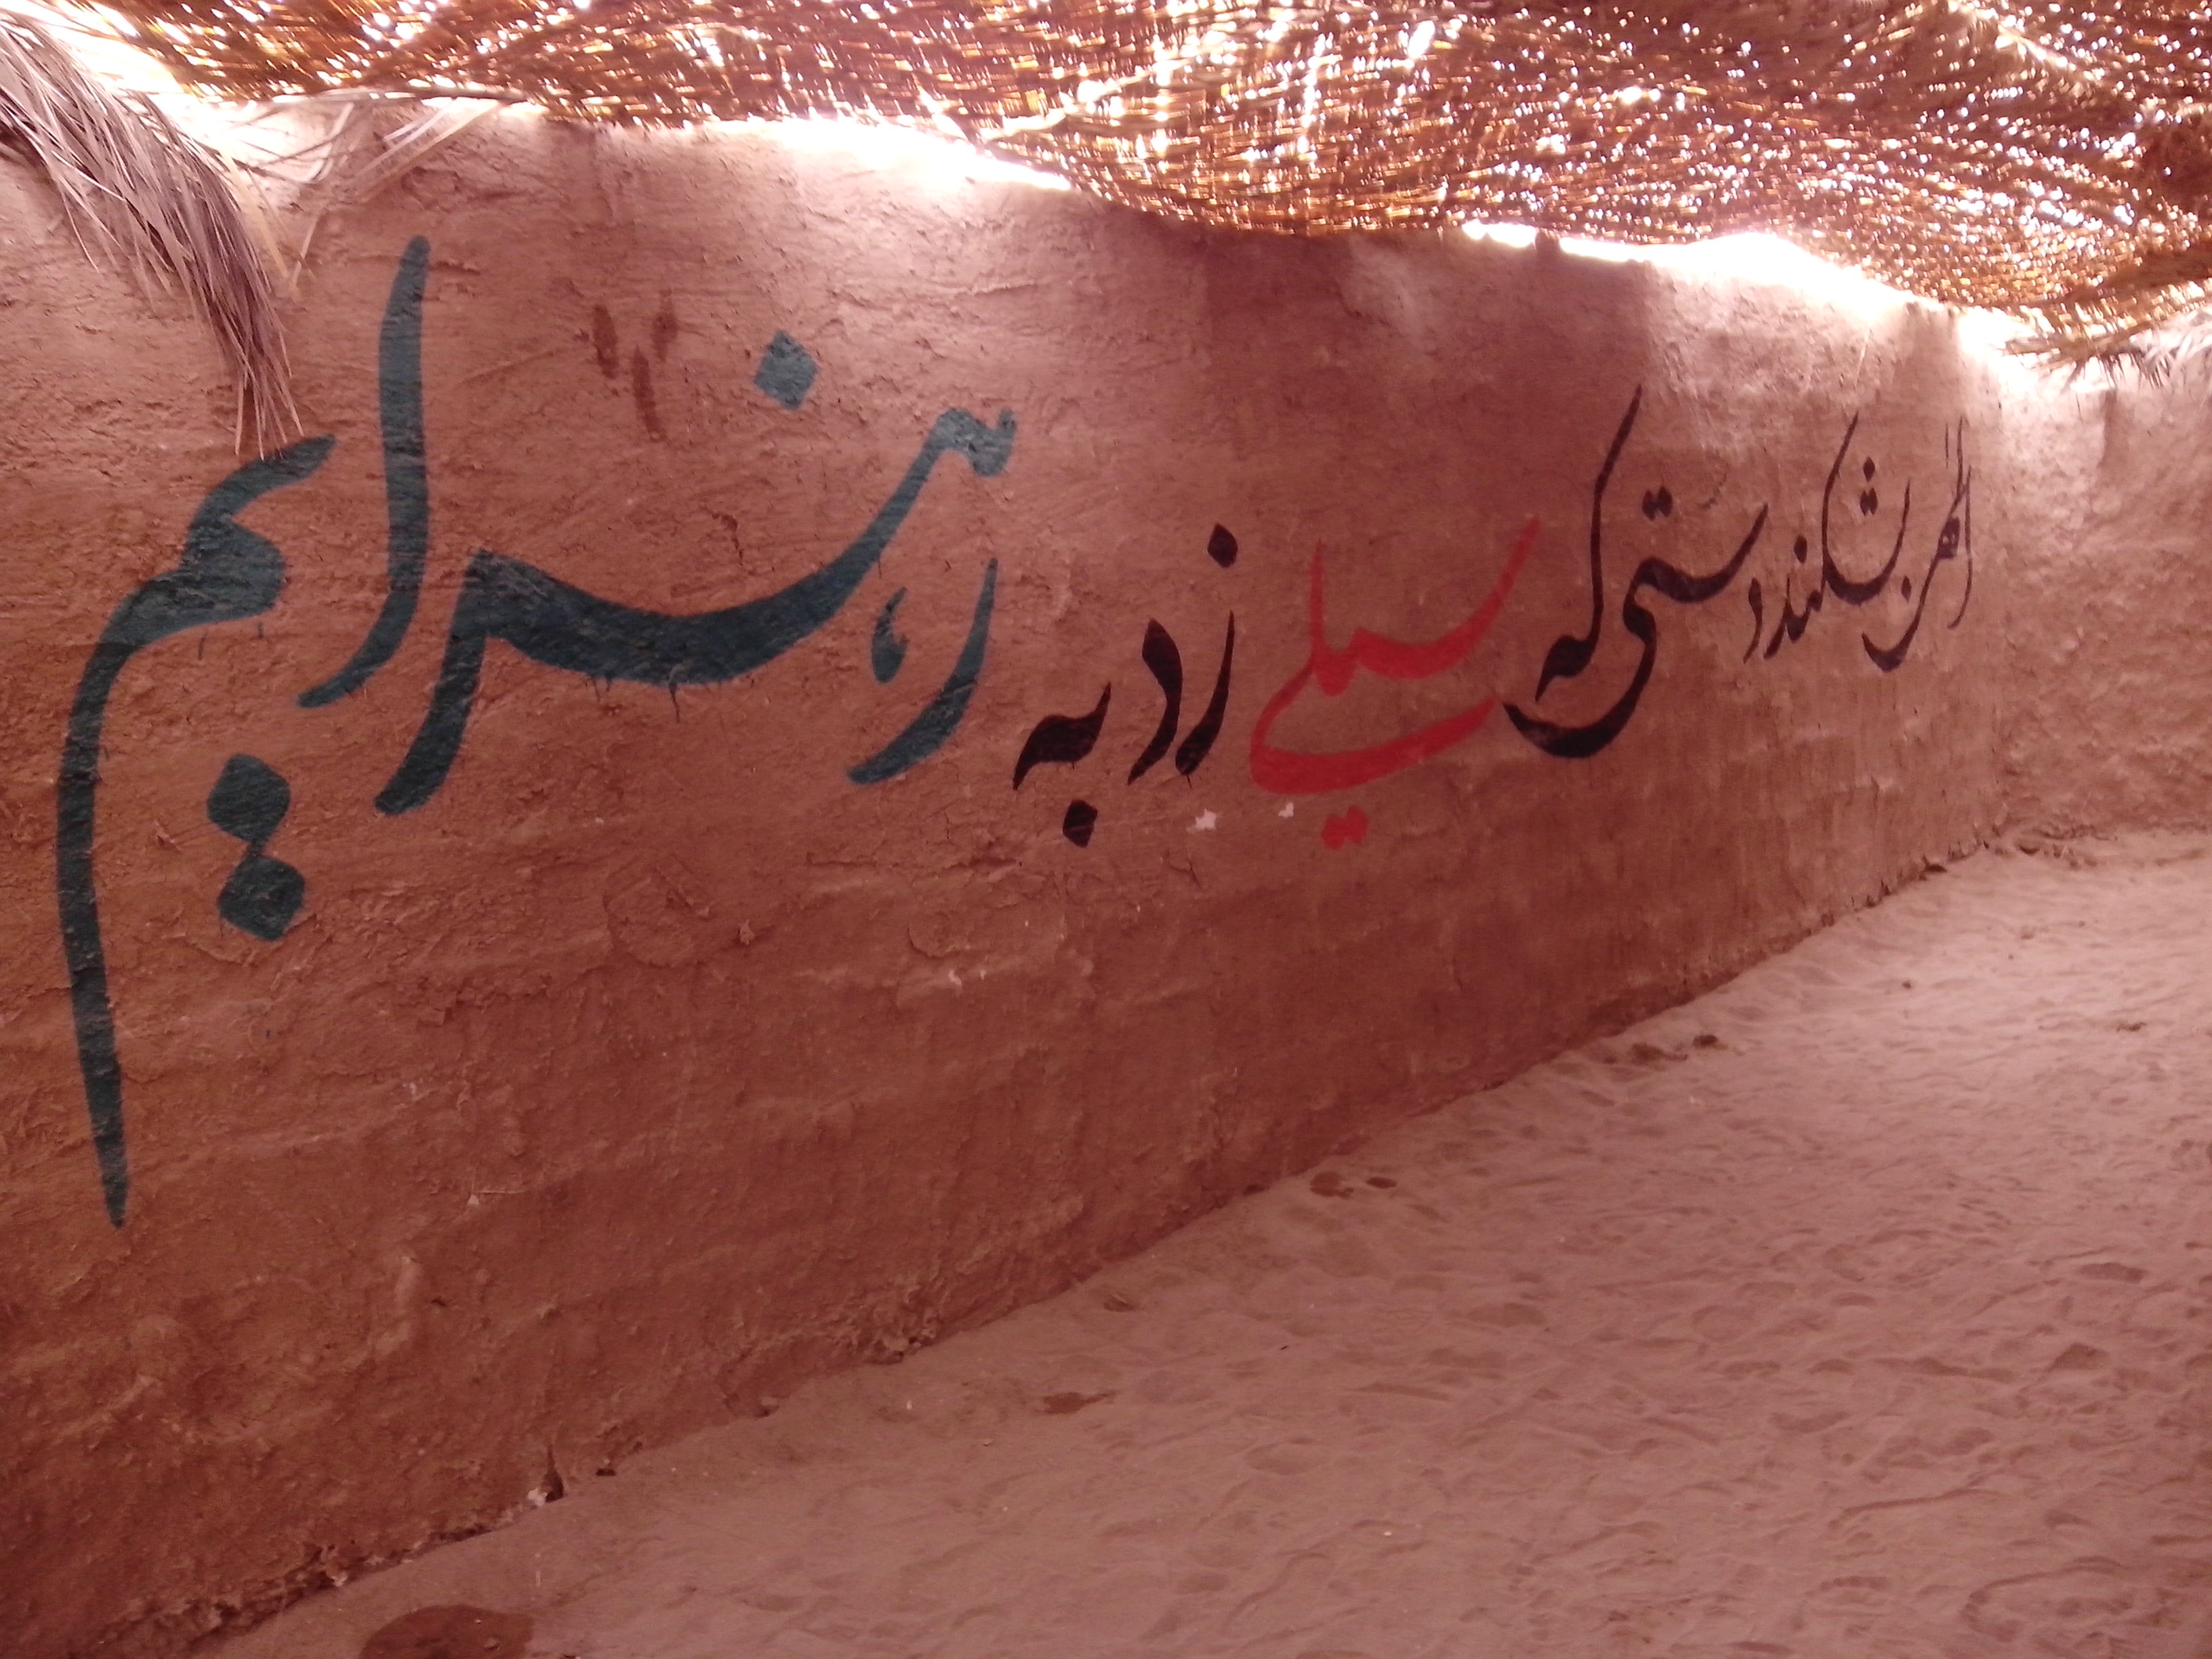 الهی بشکند دستی که سیلی زد به زهرایم